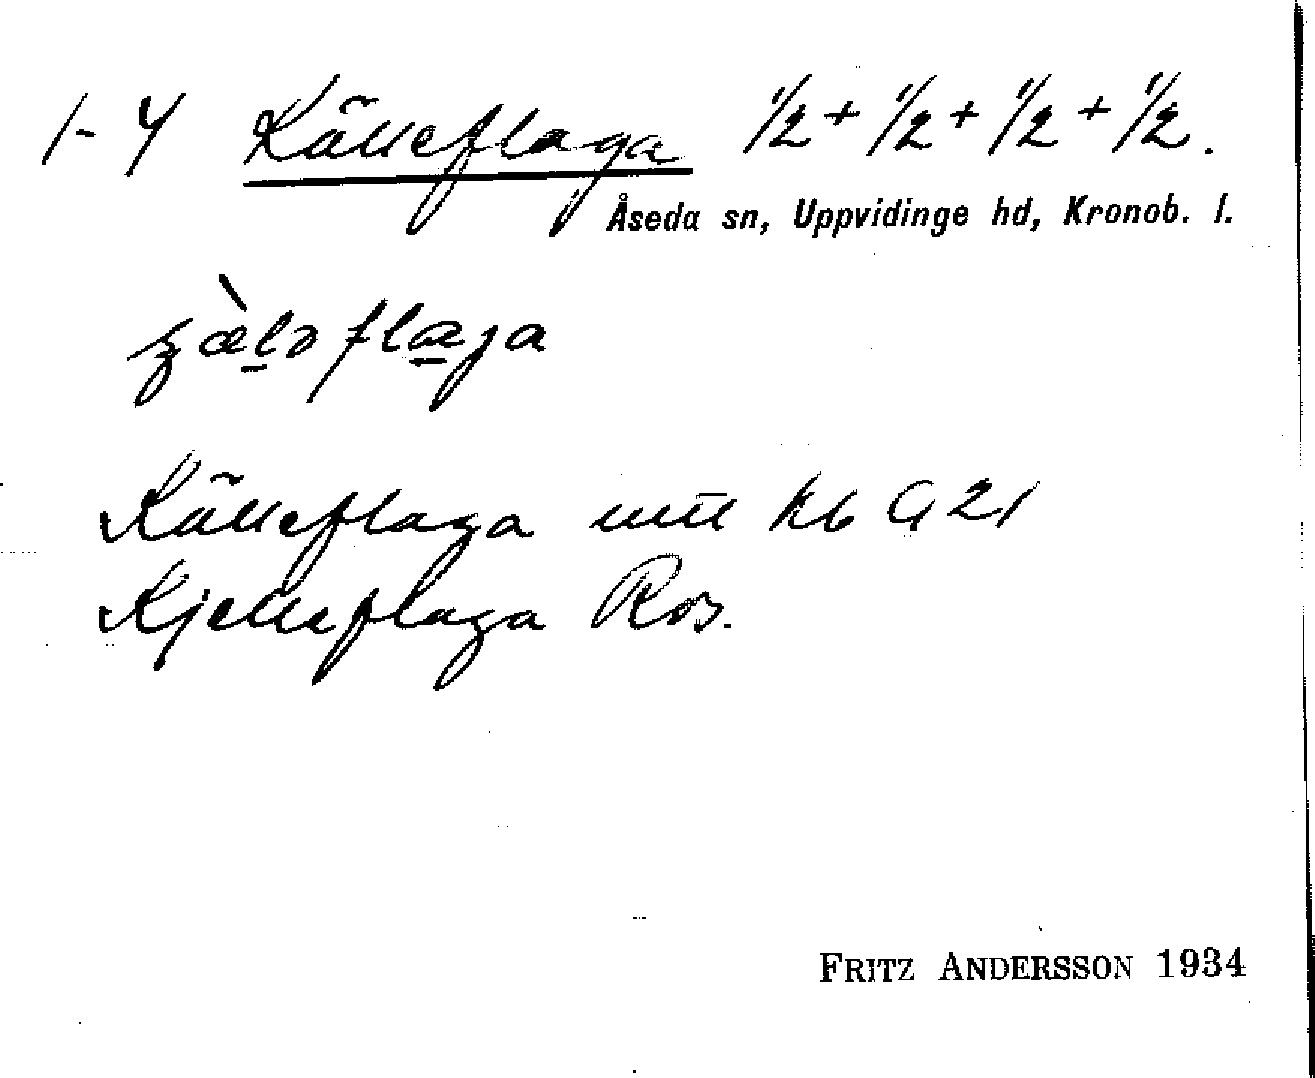 1-4 Källeflaga 1/2 + 1/2 + 1/2 + 1/2.
Åseda sn, Uppvidinge hd, Kronob. l.
Källeflaga Kb G 21
Kjelleflaga Ros.
FRITZ ANDERSSON 1934